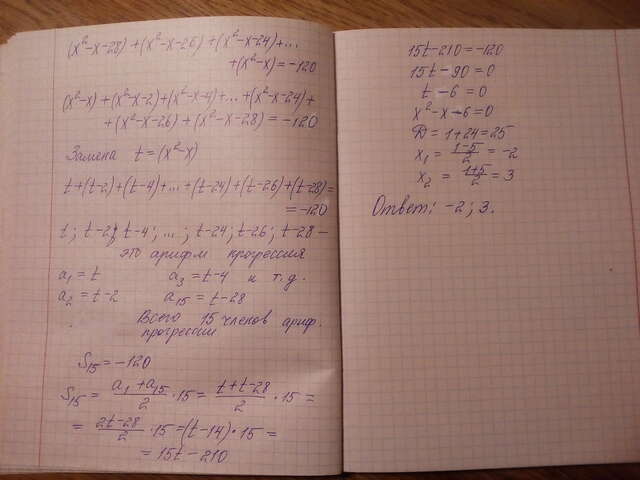 (x²-x-28)+(x²-x-26)+(x²-x-24)+...
+(x²-x)=-120
(x²-x)+(x²-x-2)+(x²-x-4)+...+(x²-x-24)+
+(x²-x-26)+(x²-x-28)=-120
Замена t=(x²-x)
t+(t-2)+(t-4)+...+(t-24)+(t-26)+(t-28)=
=-120
t; t-2; t-4; ...; t-24; t-26; t-28 -
это арифм прогрессия
a₁=t a₃=t-4 и т.д.
a₂=t-2 a₁₅=t-28
Всего 15 членов ариф.
прогрессии
S₁₅=-120
S₁₅= (a₁+a₁₅)/2 ·15 = (t+t-28)/2 ·15 =
= (2t-28)/2 ·15 =(t-14)·15 =
=15t-210
15t-210=-120
15t-90=0
t-6=0
x²-x-6=0
D=1+24=25
x₁= (1-5)/2 = -2
x₂= (1+5)/2 = 3
Ответ: -2; 3.